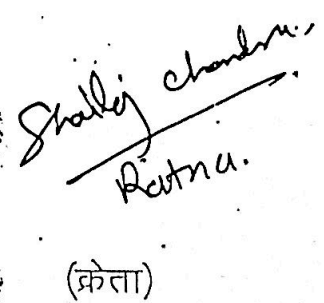 Shailej Chandra
Ratna.
(क्रेता)